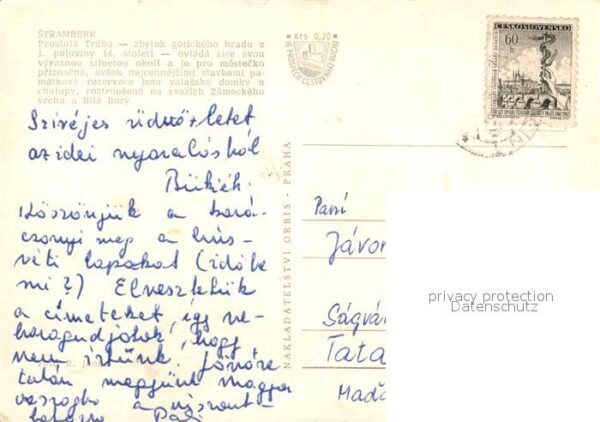 ŠTRAMBERK
Proslulá Trúba — zbytek gotického hradu z
1. poloviny 14. století — ovládá sice svou
výraznou siluetou okolí a je pro městečko
příznačná, avšak nejcennějšími stavbami pa-
mátková rezervace jsou valašské domky a
chalupy, roztroušené na svazích Zámeckého
vrchu a Bílé hory
Kčs 0,20
ČESKOSLOVENSKO
60
Szívéjes üdvözletet
az idei nyaralásból
Bükiék.
Köszönjük a kará-
csonyi meg a hús-
véti lapokat (időbe
mi?) Elvesztettük
a címeteket, így ne
haragudjatok, hogy
nem írtunk. Jövőre
talán megyünk Magyar
országba a viszont-
Pali
NAKLADATELSTVÍ ORBIS - PRAHA
Jávor
Ságvár
Tata
Maďa
privacy protection
Datenschutz